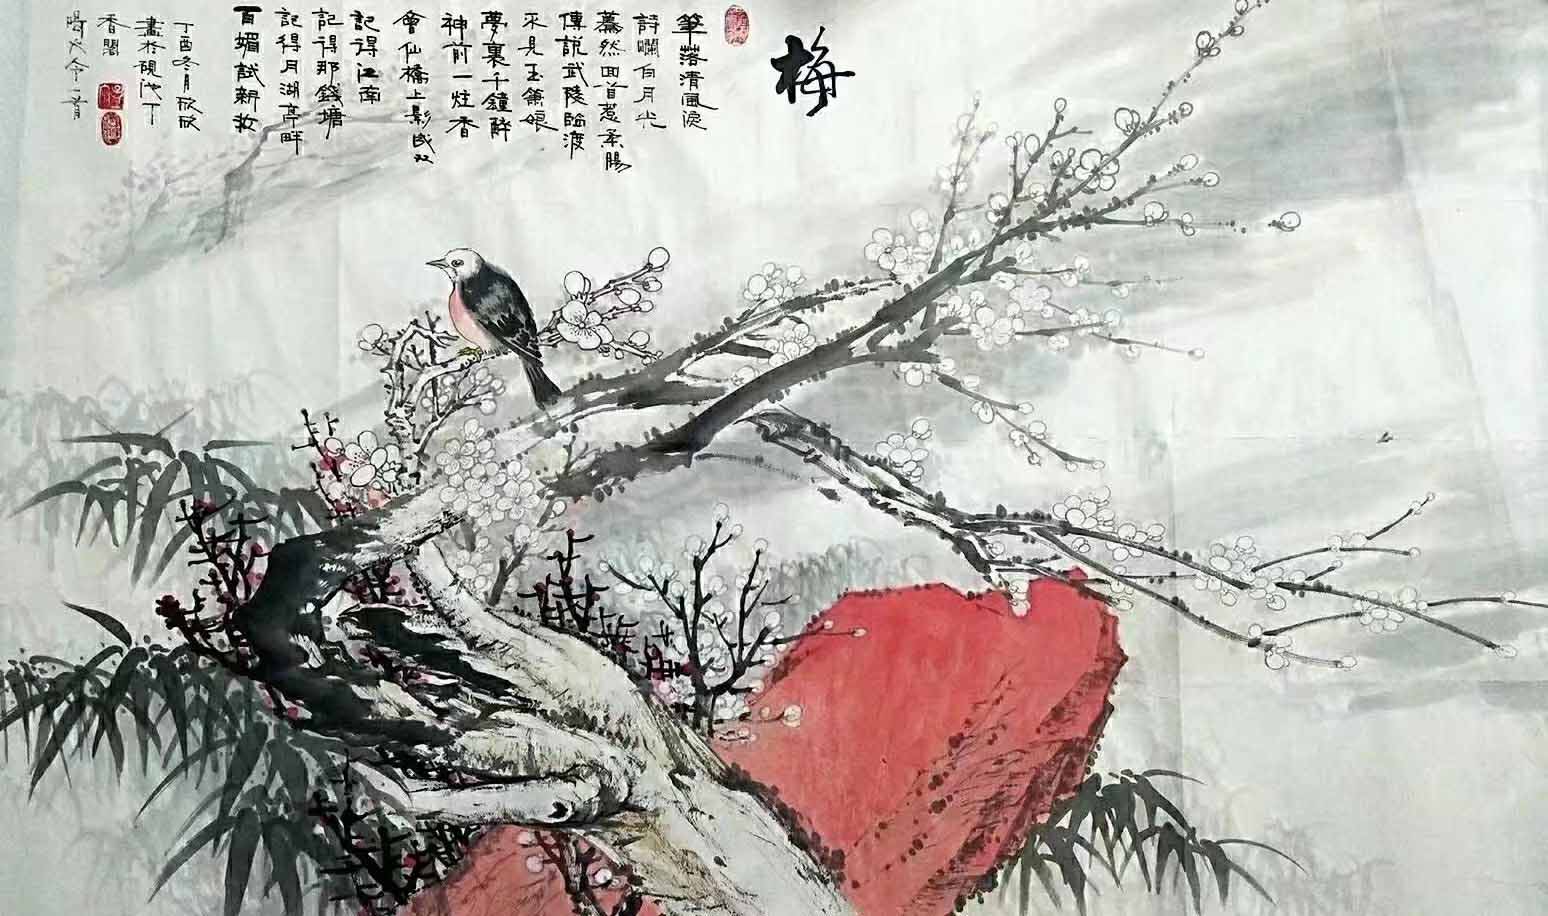 梅
筆落清風
詩爛白月光
驀然回首惹柔腸
傳說武陵臨渡
不見玉簫娘
夢裏千鐘醉
神前一炷香
會仙橋上影成双
記得江南
記得那錢塘
記得月湖亭畔
百媚試新妝
丁酉冬月欣欣
畫於硯池丁
香閣
喝火令一首